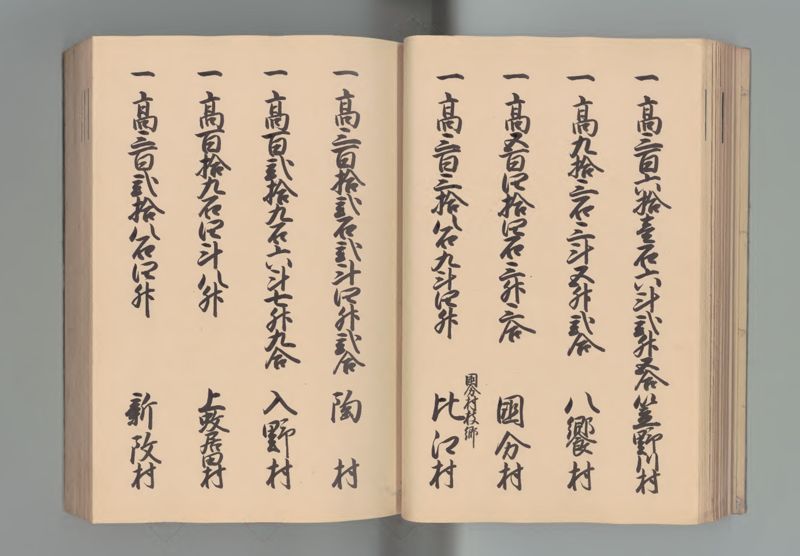 一高三百六拾壱石六斗弐升五合 笠野川村
一高九拾三石三斗五升弐合 八饗村
一高五百四拾四石三升三合 國分村
國分村枝郷
一高三百三拾八石九斗四升 比江村
一高三百拾弐石弐斗四升弐合 陶村
一高百弐拾九石六斗七升九合 入野村
一高百拾九石四斗八升 上 居田村
一高三百弐拾八石四升 新改村